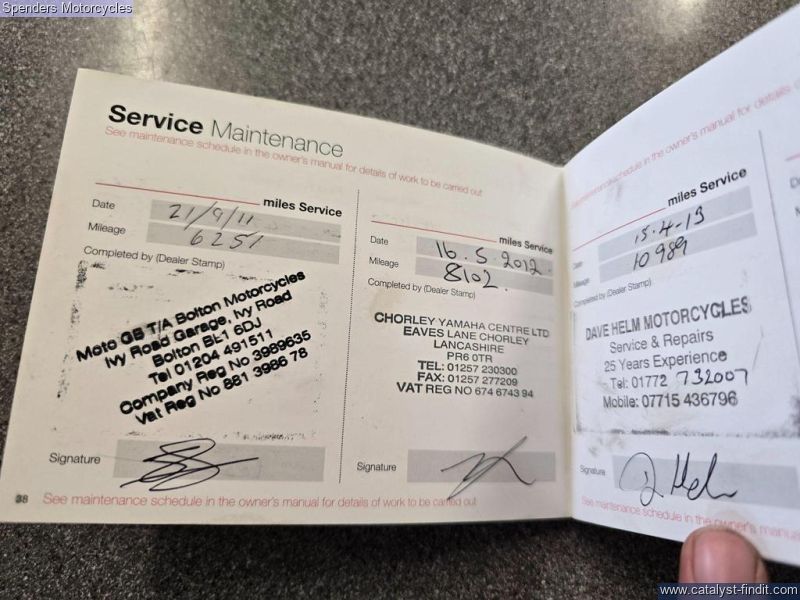 Spenders Motorcycles
Service Maintenance
See maintenance schedule in the owner's manual for details of work to be carried out
miles Service
Date 21/9/11
Mileage 6251
Completed by (Dealer Stamp)
Moto GB T/A Bolton Motorcycles
Ivy Road Garage, Ivy Road
Bolton BL1 6DJ
Tel 01204 491511
Company Reg No 3989635
Vat Reg No 881 3986 78
Signature
38 See maintenance schedule in the owner's manual for details of work to be carried out
miles Service
Date 16.5.2012.
Mileage 8102.
Completed by (Dealer Stamp)
CHORLEY YAMAHA CENTRE LTD
EAVES LANE CHORLEY
LANCASHIRE
PR6 0TR
TEL: 01257 230300
FAX: 01257 277209
VAT REG NO 674 6743 94
Signature
maintenance schedule in the owner's manual for details
miles Service
Date 15.4.13
Mileage 10989
Completed by (Dealer Stamp)
DAVE HELM MOTORCYCLES
Service & Repairs
25 Years Experience
Tel: 01772 732007
Mobile: 07715 436796
Signature D Helm
See maintenance schedule in the owner's manua
www.catalyst-findit.com